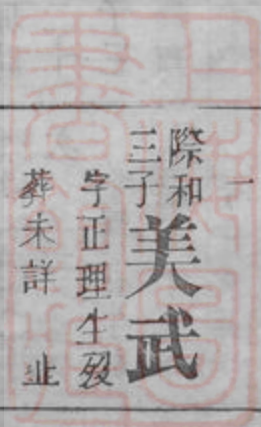 一
際和
三子
美武
字正理生歿
葬未詳 止